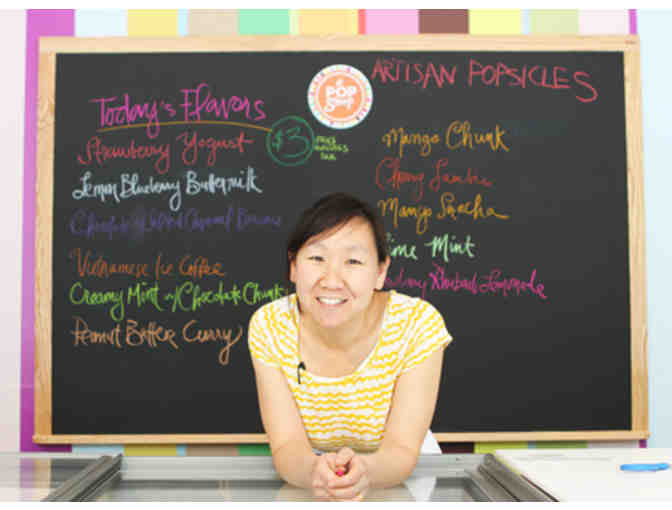 Today's Flavors
Strawberry Yogurt
Lemon Blueberry Buttermilk
Chocolate Salted Caramel Brownie
Vietnamese Ice Coffee
Creamy Mint w/ Chocolate Chunk
Peanut Butter Curry
POP
Shop
$3
PRICE
INCLUDES
TAX
ARTISAN POPSICLES
Mango Chunk
Mango
Mint
Rhubarb Lemonade